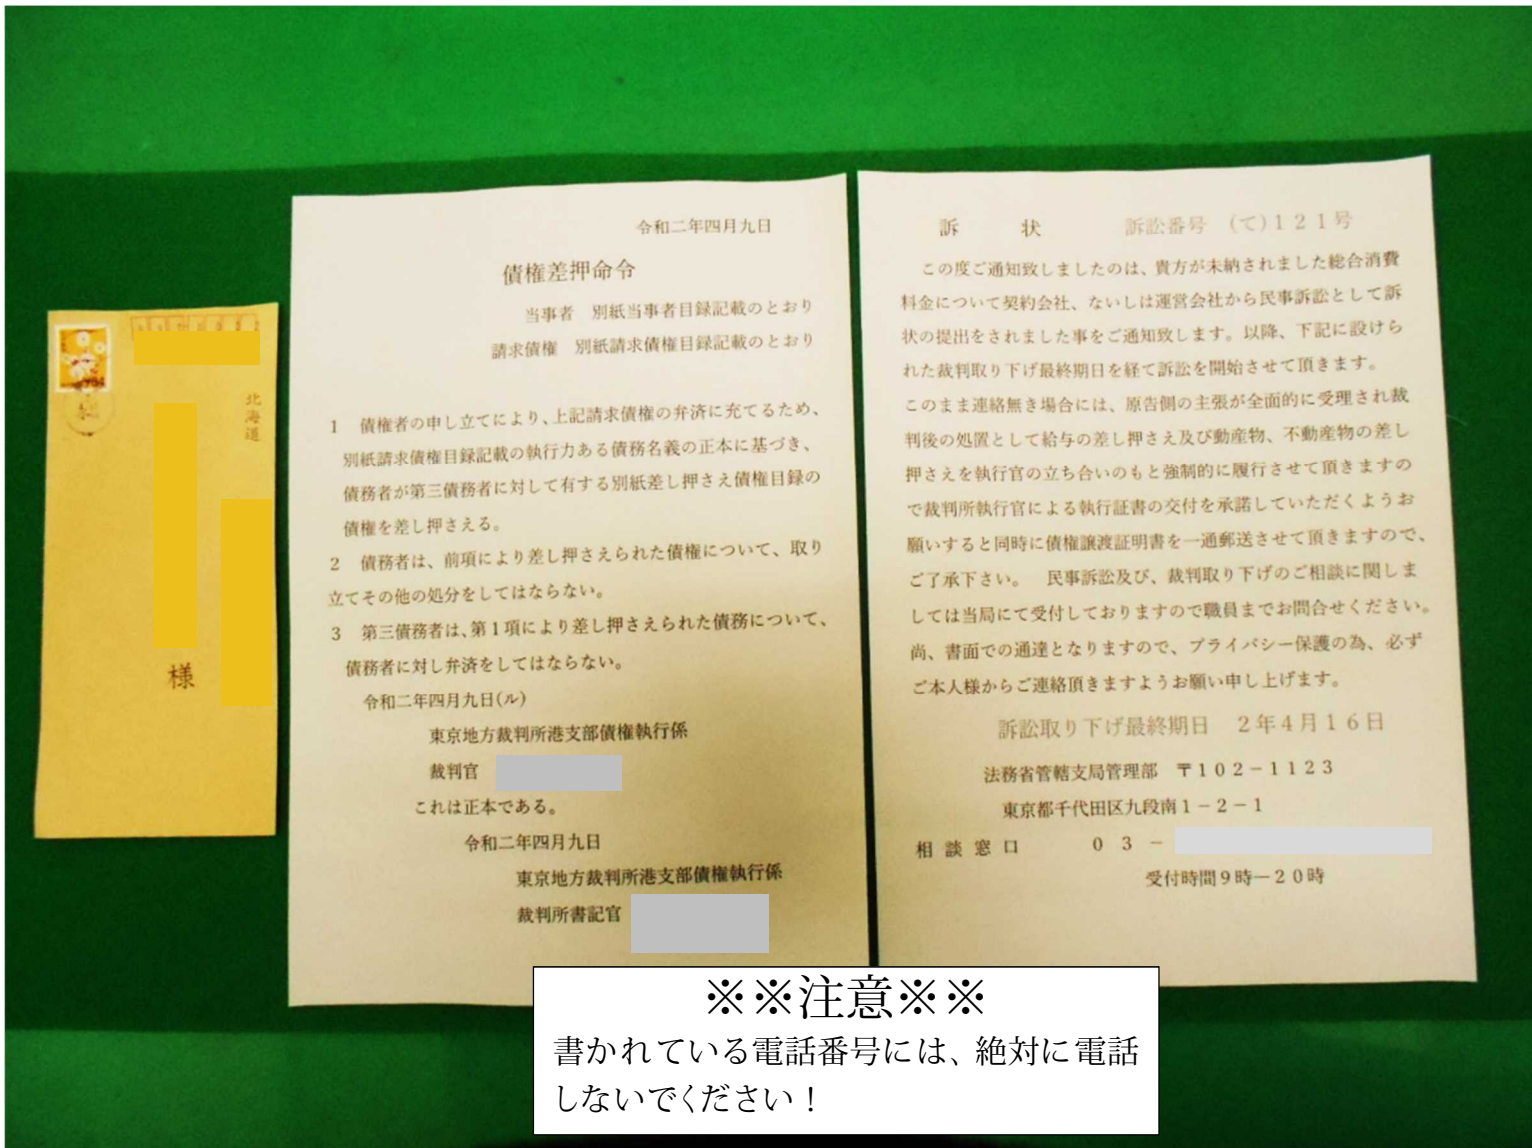 北海道
様
令和二年四月九日
債権差押命令
当事者　別紙当事者目録記載のとおり
請求債権　別紙請求債権目録記載のとおり
1　債権者の申し立てにより、上記請求債権の弁済に充てるため、
別紙請求債権目録記載の執行力ある債務名義の正本に基づき、
債務者が第三債務者に対して有する別紙差し押さえ債権目録の
債権を差し押さえる。
2　債務者は、前項により差し押さえられた債権について、取り
立てその他の処分をしてはならない。
3　第三債務者は、第1項により差し押さえられた債務について、
債務者に対し弁済をしてはならない。
令和二年四月九日(ル)
東京地方裁判所港支部債権執行係
裁判官
これは正本である。
令和二年四月九日
東京地方裁判所港支部債権執行係
裁判所書記官
訴　状　訴訟番号　(て)121号
この度ご通知致しましたのは、貴方が未納されました総合消費
料金について契約会社、ないしは運営会社から民事訴訟として訴
状の提出をされました事をご通知致します。以降、下記に設けら
れた裁判取り下げ最終期日を経て訴訟を開始させて頂きます。
このまま連絡無き場合には、原告側の主張が全面的に受理され裁
判後の処置として給与の差し押さえ及び動産物、不動産物の差し
押さえを執行官の立ち合いのもと強制的に履行させて頂きますの
で裁判所執行官による執行証書の交付を承諾していただくようお
願いすると同時に債権譲渡証明書を一通郵送させて頂きますので、
ご了承下さい。　民事訴訟及び、裁判取り下げのご相談に関しま
しては当局にて受付しておりますので職員までお問合せください。
尚、書面での通達となりますので、プライバシー保護の為、必ず
ご本人様からご連絡頂きますようお願い申し上げます。
訴訟取り下げ最終期日　2年4月16日
法務省管轄支局管理部　〒102－1123
東京都千代田区九段南1－2－1
相談窓口　03－
受付時間9時―20時
※※注意※※
書かれている電話番号には、絶対に電話
しないでください！